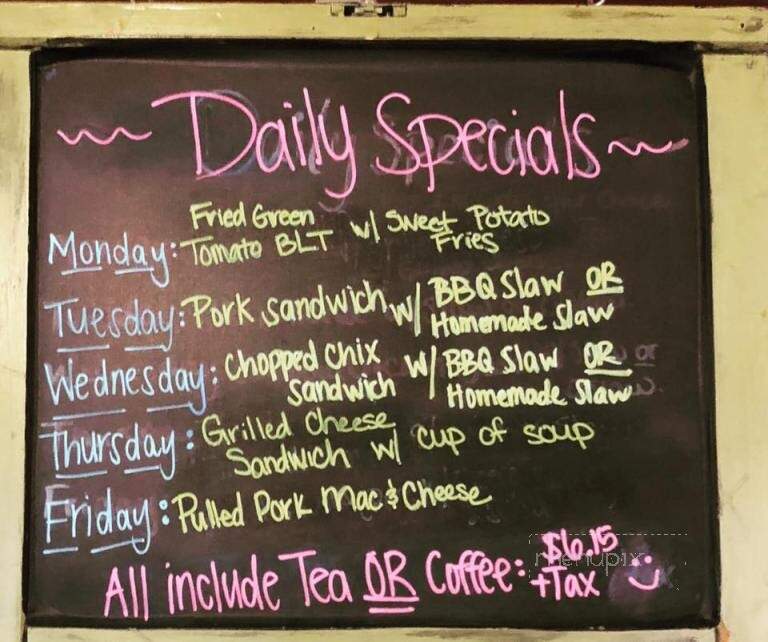 ~ Daily Specials ~
Monday: Fried Green Tomato BLT w/ Sweet Potato Fries
Tuesday: Pork Sandwich w/ BBQ Slaw OR Homemade Slaw
Wednesday: Chopped Chix Sandwich w/ BBQ Slaw OR Homemade Slaw
Thursday: Grilled Cheese Sandwich w/ cup of soup
Friday: Pulled Pork Mac & Cheese
All include Tea OR Coffee: $6.15 +Tax
menupix